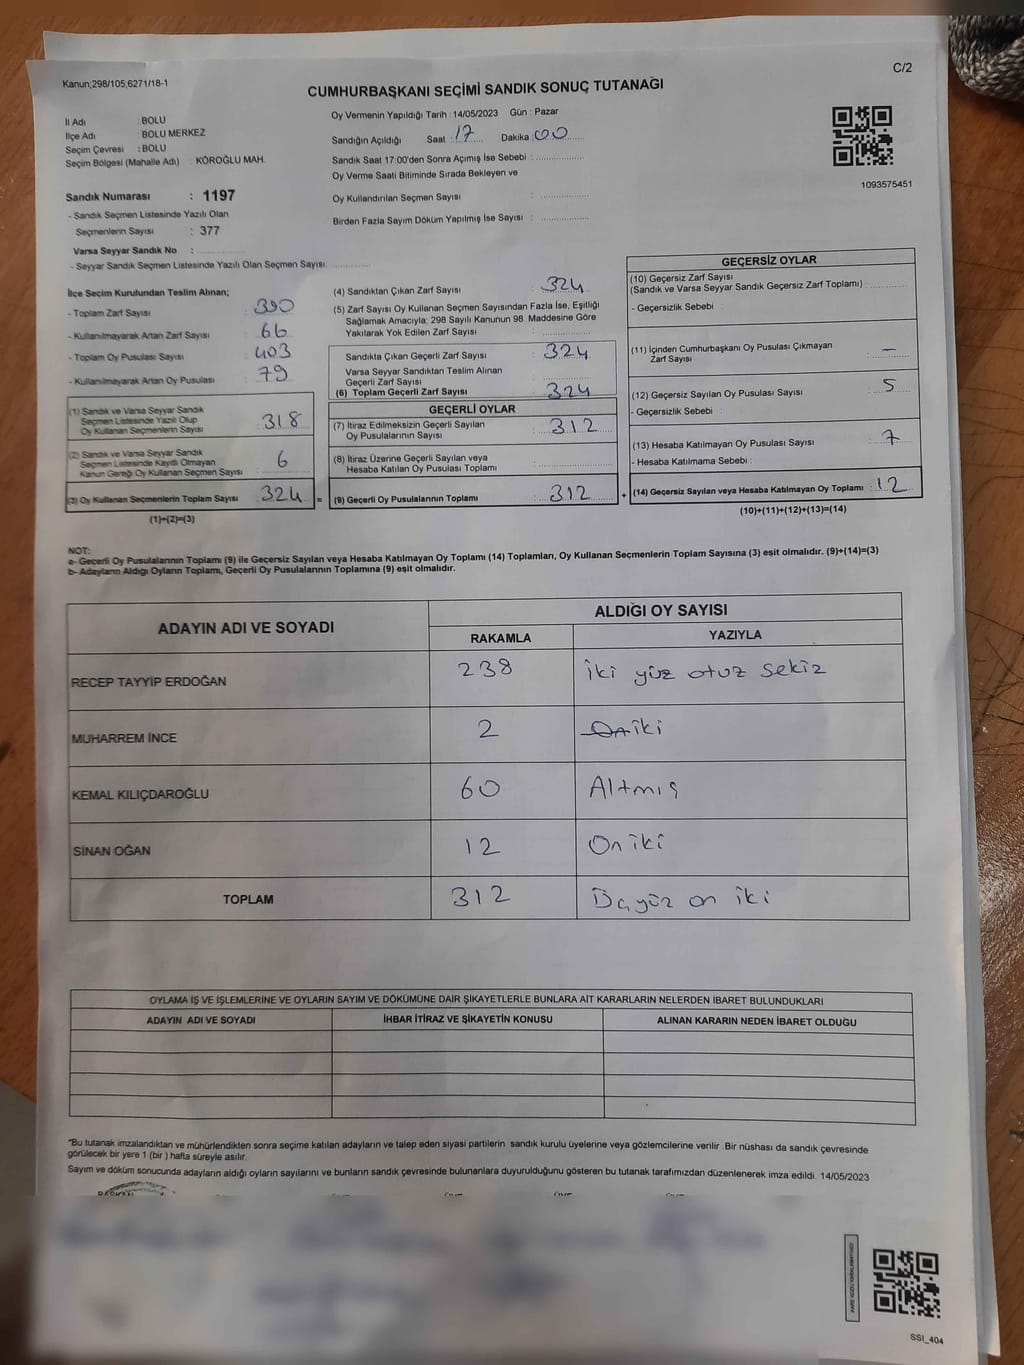 Kanun;298/105;6271/18-1
C/2
CUMHURBAŞKANI SEÇİMİ SANDIK SONUÇ TUTANAĞI
İl Adı : BOLU
İlçe Adı : BOLU MERKEZ
Seçim Çevresi : BOLU
Seçim Bölgesi (Mahalle Adı) : KÖROĞLU MAH.
Sandık Numarası : 1197
- Sandık Seçmen Listesinde Yazılı Olan
Seçmenlerin Sayısı : 377
Varsa Seyyar Sandık No :
- Seyyar Sandık Seçmen Listesinde Yazılı Olan Seçmen Sayısı:
Oy Vermenin Yapıldığı Tarih : 14/05/2023 Gün : Pazar
Sandığın Açıldığı Saat : 17 Dakika : 00
Sandık Saat 17:00'den Sonra Açımış İse Sebebi :
Oy Verme Saati Bitiminde Sırada Bekleyen ve
Oy Kullandırılan Seçmen Sayısı :
Birden Fazla Sayım Döküm Yapılmış İse Sayısı :
1093575451
İlçe Seçim Kurulundan Teslim Alınan;
- Toplam Zarf Sayısı : 390
- Kullanılmayarak Artan Zarf Sayısı : 66
- Toplam Oy Pusulası Sayısı : 403
- Kullanılmayarak Artan Oy Pusulası : 79
(1) Sandık ve Varsa Seyyar Sandık
Seçmen Listesinde Yazılı Olup
Oy Kullanan Seçmenlerin Sayısı : 318
(2) Sandık ve Varsa Seyyar Sandık
Seçmen Listesinde Kayıtlı Olmayan
Kanun Gereği Oy Kullanan Seçmen Sayısı : 6
(3) Oy Kullanan Seçmenlerin Toplam Sayısı : 324 =
(1)+(2)=(3)
(4) Sandıktan Çıkan Zarf Sayısı : 324
(5) Zarf Sayısı Oy Kullanan Seçmen Sayısından Fazla İse, Eşitliği
Sağlamak Amacıyla; 298 Sayılı Kanunun 98. Maddesine Göre
Yakılarak Yok Edilen Zarf Sayısı :
Sandıkta Çıkan Geçerli Zarf Sayısı : 324
Varsa Seyyar Sandıktan Teslim Alınan
Geçerli Zarf Sayısı :
(6) Toplam Geçerli Zarf Sayısı : 324
GEÇERLİ OYLAR
(7) İtiraz Edilmeksizin Geçerli Sayılan
Oy Pusulalarının Sayısı : 312
(8) İtiraz Üzerine Geçerli Sayılan veya
Hesaba Katılan Oy Pusulası Toplamı :
(9) Geçerli Oy Pusulalarının Toplamı : 312 +
GEÇERSİZ OYLAR
(10) Geçersiz Zarf Sayısı
(Sandık ve Varsa Seyyar Sandık Geçersiz Zarf Toplamı) :
- Geçersizlik Sebebi :
(11) İçinden Cumhurbaşkanı Oy Pusulası Çıkmayan
Zarf Sayısı : —
(12) Geçersiz Sayılan Oy Pusulası Sayısı : 5
- Geçersizlik Sebebi :
(13) Hesaba Katılmayan Oy Pusulası Sayısı : 7
- Hesaba Katılmama Sebebi :
(14) Geçersiz Sayılan veya Hesaba Katılmayan Oy Toplamı : 12
(10)+(11)+(12)+(13)=(14)
NOT:
a- Geçerli Oy Pusulalarının Toplamı (9) ile Geçersiz Sayılan veya Hesaba Katılmayan Oy Toplamı (14) Toplamları, Oy Kullanan Seçmenlerin Toplam Sayısına (3) eşit olmalıdır. (9)+(14)=(3)
b- Adayların Aldığı Oyların Toplamı, Geçerli Oy Pusulalarının Toplamına (9) eşit olmalıdır.
ADAYIN ADI VE SOYADI
ALDIĞI OY SAYISI
RAKAMLA YAZIYLA
RECEP TAYYİP ERDOĞAN 238 İki yüz otuz sekiz
MUHARREM İNCE 2 On iki
KEMAL KILIÇDAROĞLU 60 Altmış
SİNAN OĞAN 12 On iki
TOPLAM 312 on iki
OYLAMA İŞ VE İŞLEMLERİNE VE OYLARIN SAYIM VE DÖKÜMÜNE DAİR ŞİKAYETLERLE BUNLARA AİT KARARLARIN NELERDEN İBARET BULUNDUKLARI
ADAYIN ADI VE SOYADI İHBAR İTİRAZ VE ŞİKAYETİN KONUSU ALINAN KARARIN NEDEN İBARET OLDUĞU
"Bu tutanak imzalandıktan ve mühürlendikten sonra seçime katılan adayların ve talep eden siyasi partilerin sandık kurulu üyelerine veya gözlemcilerine verilir. Bir nüshası da sandık çevresinde
görülecek bir yere 1 (bir) hafta süreyle asılır.
Sayım ve döküm sonucunda adayların aldığı oyların sayılarını ve bunların sandık çevresinde bulunanlara duyurulduğunu gösteren bu tutanak tarafımızdan düzenlenerek imza edildi. 14/05/2023
SSI_404